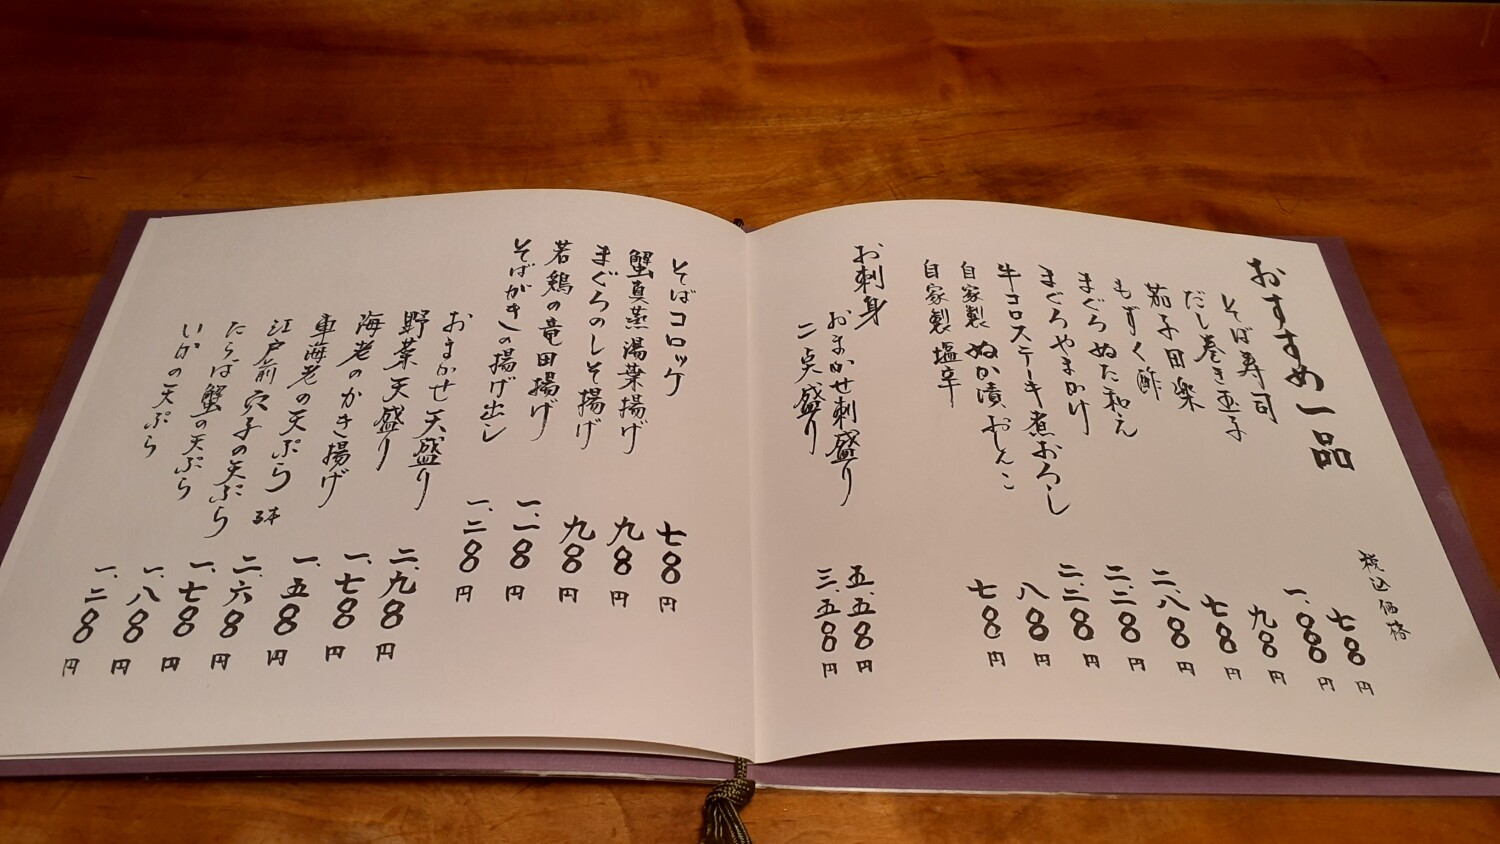 おすすめ一品
税込価格
そば寿司 七〇〇円
だし巻き玉子 一、〇〇〇円
茄子田楽 九〇〇円
もずく酢 七〇〇円
まぐろぬた和え 二、八〇〇円
まぐろやまかけ 二、二〇〇円
牛コロステーキ煮おろし 二、二〇〇円
自家製ぬか漬おしんこ 八〇〇円
自家製塩辛 七〇〇円
お刺身
おまかせ刺盛り 五、五〇〇円
二点盛り 三、五〇〇円
そばコロッケ 七〇〇円
蟹真蒸湯葉揚げ 九〇〇円
まぐろのしそ揚げ 九〇〇円
若鶏の竜田揚げ 一、一〇〇円
そばがきの揚げ出し 一、二〇〇円
おまかせ天盛り 二、九〇〇円
野菜天盛り 一、七〇〇円
海老のかき揚げ 一、五〇〇円
車海老の天ぷら 二、六〇〇円
江戸前穴子の天ぷら 一、七〇〇円
たらば蟹の天ぷら 一、八〇〇円
いかの天ぷら 一、二〇〇円